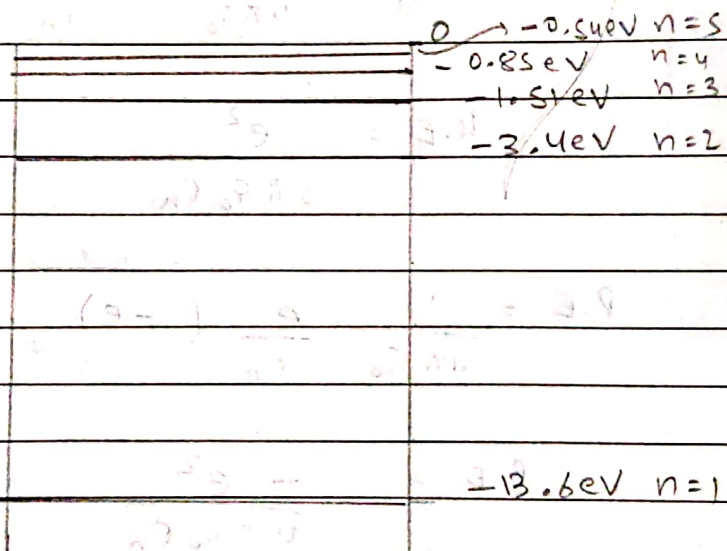 0 → -0.54eV n=5
- 0.85eV n=4
-1.51eV n=3
-3.4eV n=2
-13.6eV n=1